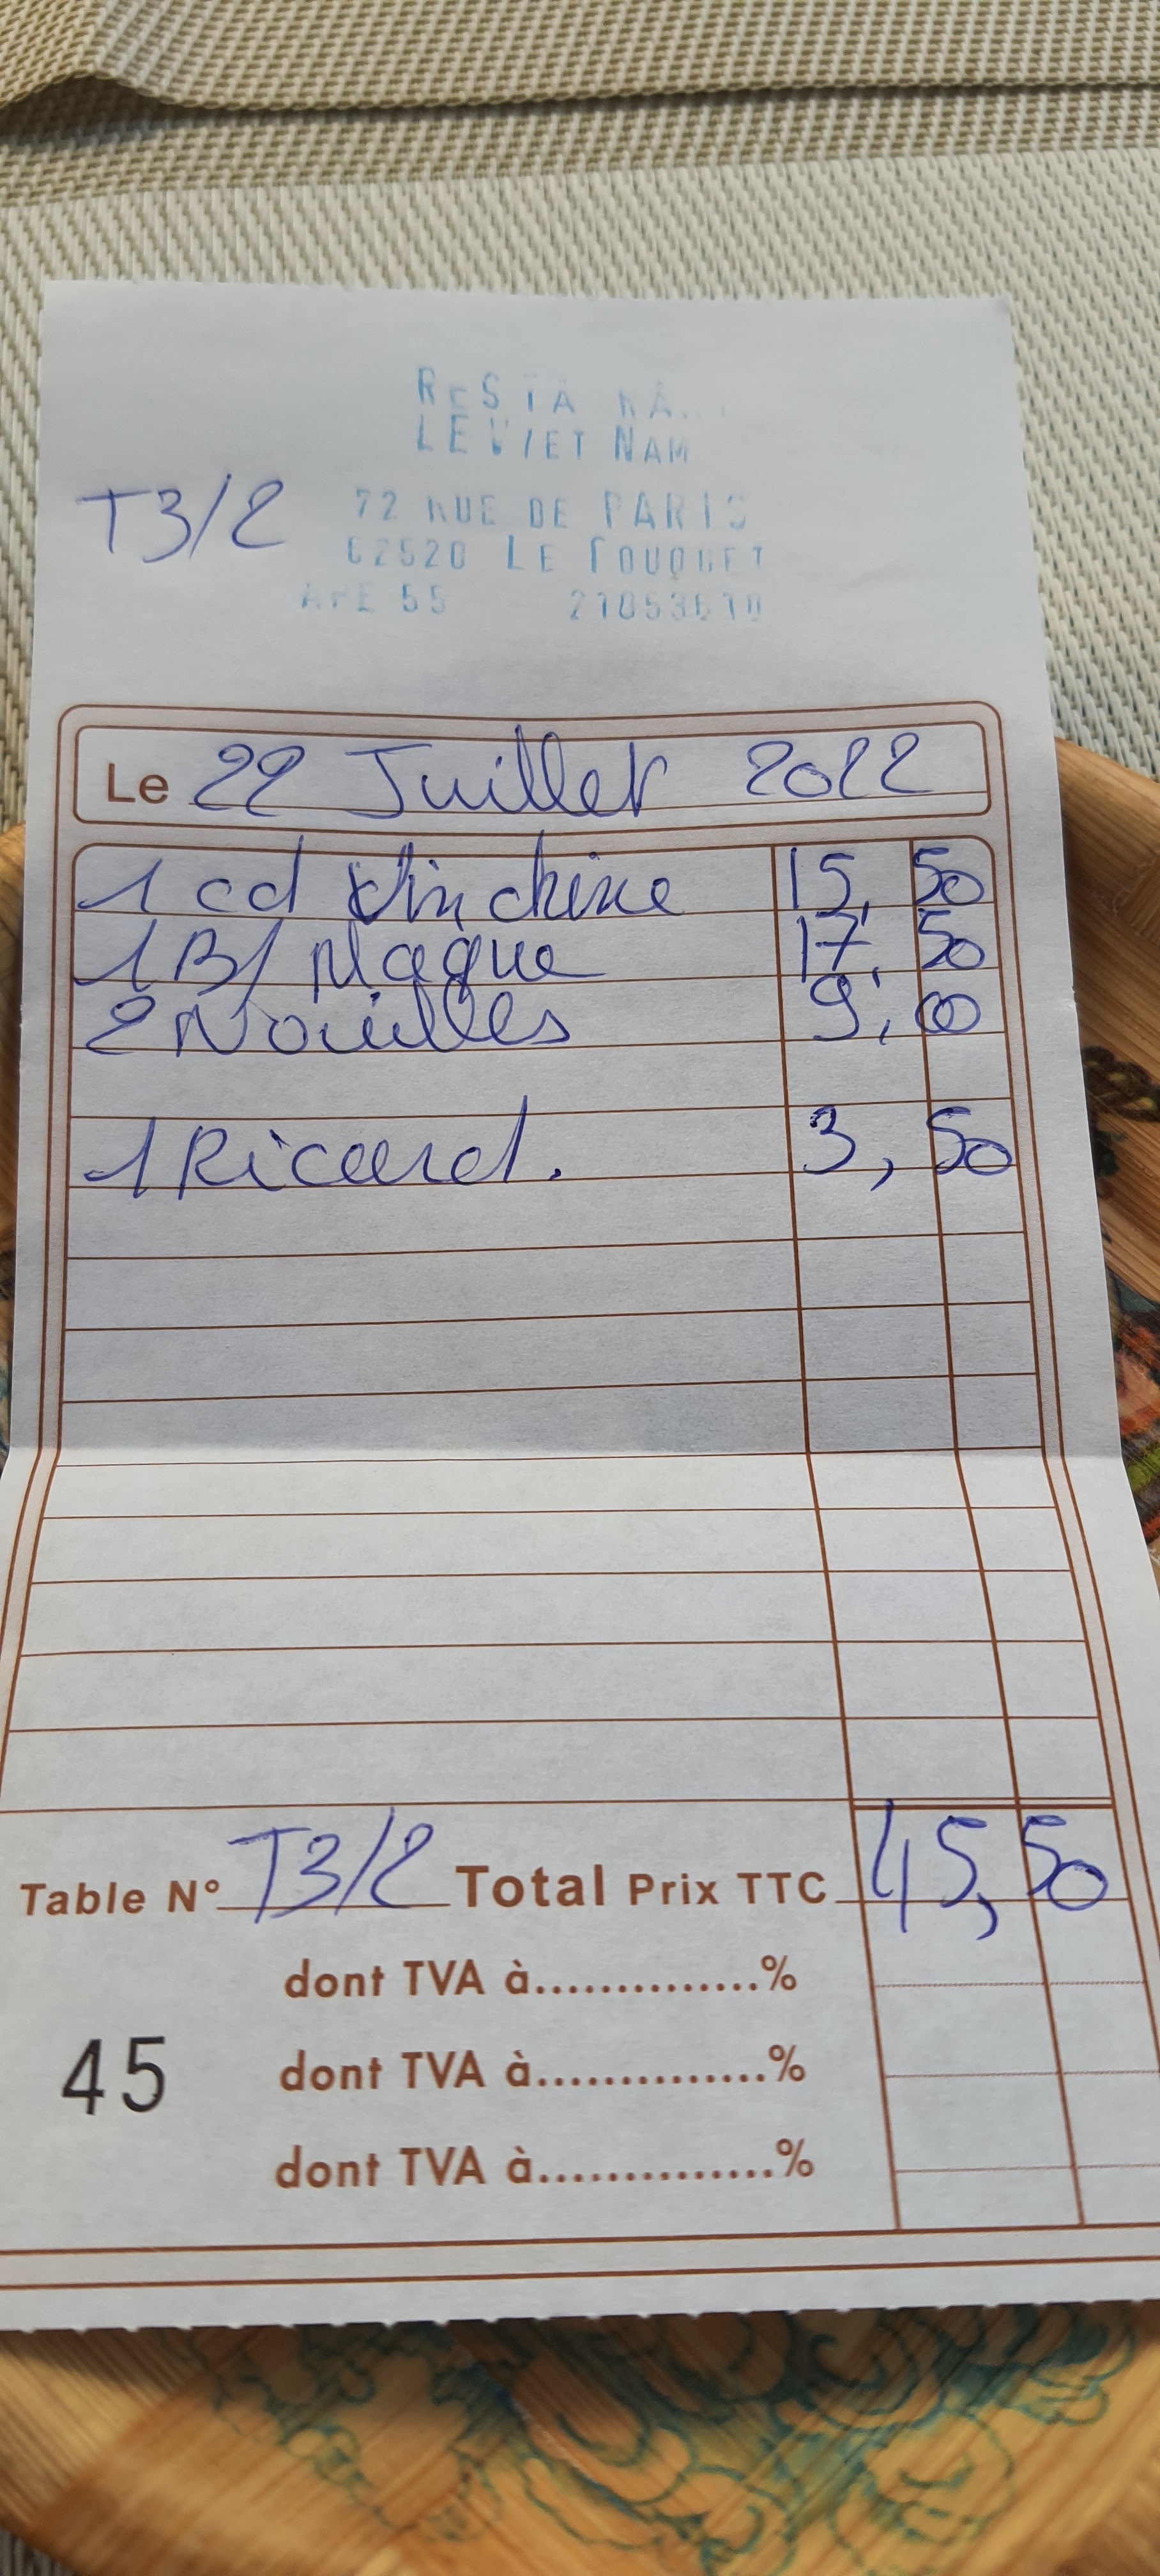 LE VIET NAM
T3/2
72 RUE DE PARIS
62520 LE TOUQUET
APE 55
Le 22 Juillet 2022
1 cd d'Indochine 15,50
1 B/ Plaque 17,50
2 Nouilles 9,00
1 Ricard. 3,50
Table N° T3/2 Total Prix TTC 45,50
dont TVA à..............%
45
dont TVA à..............%
dont TVA à..............%